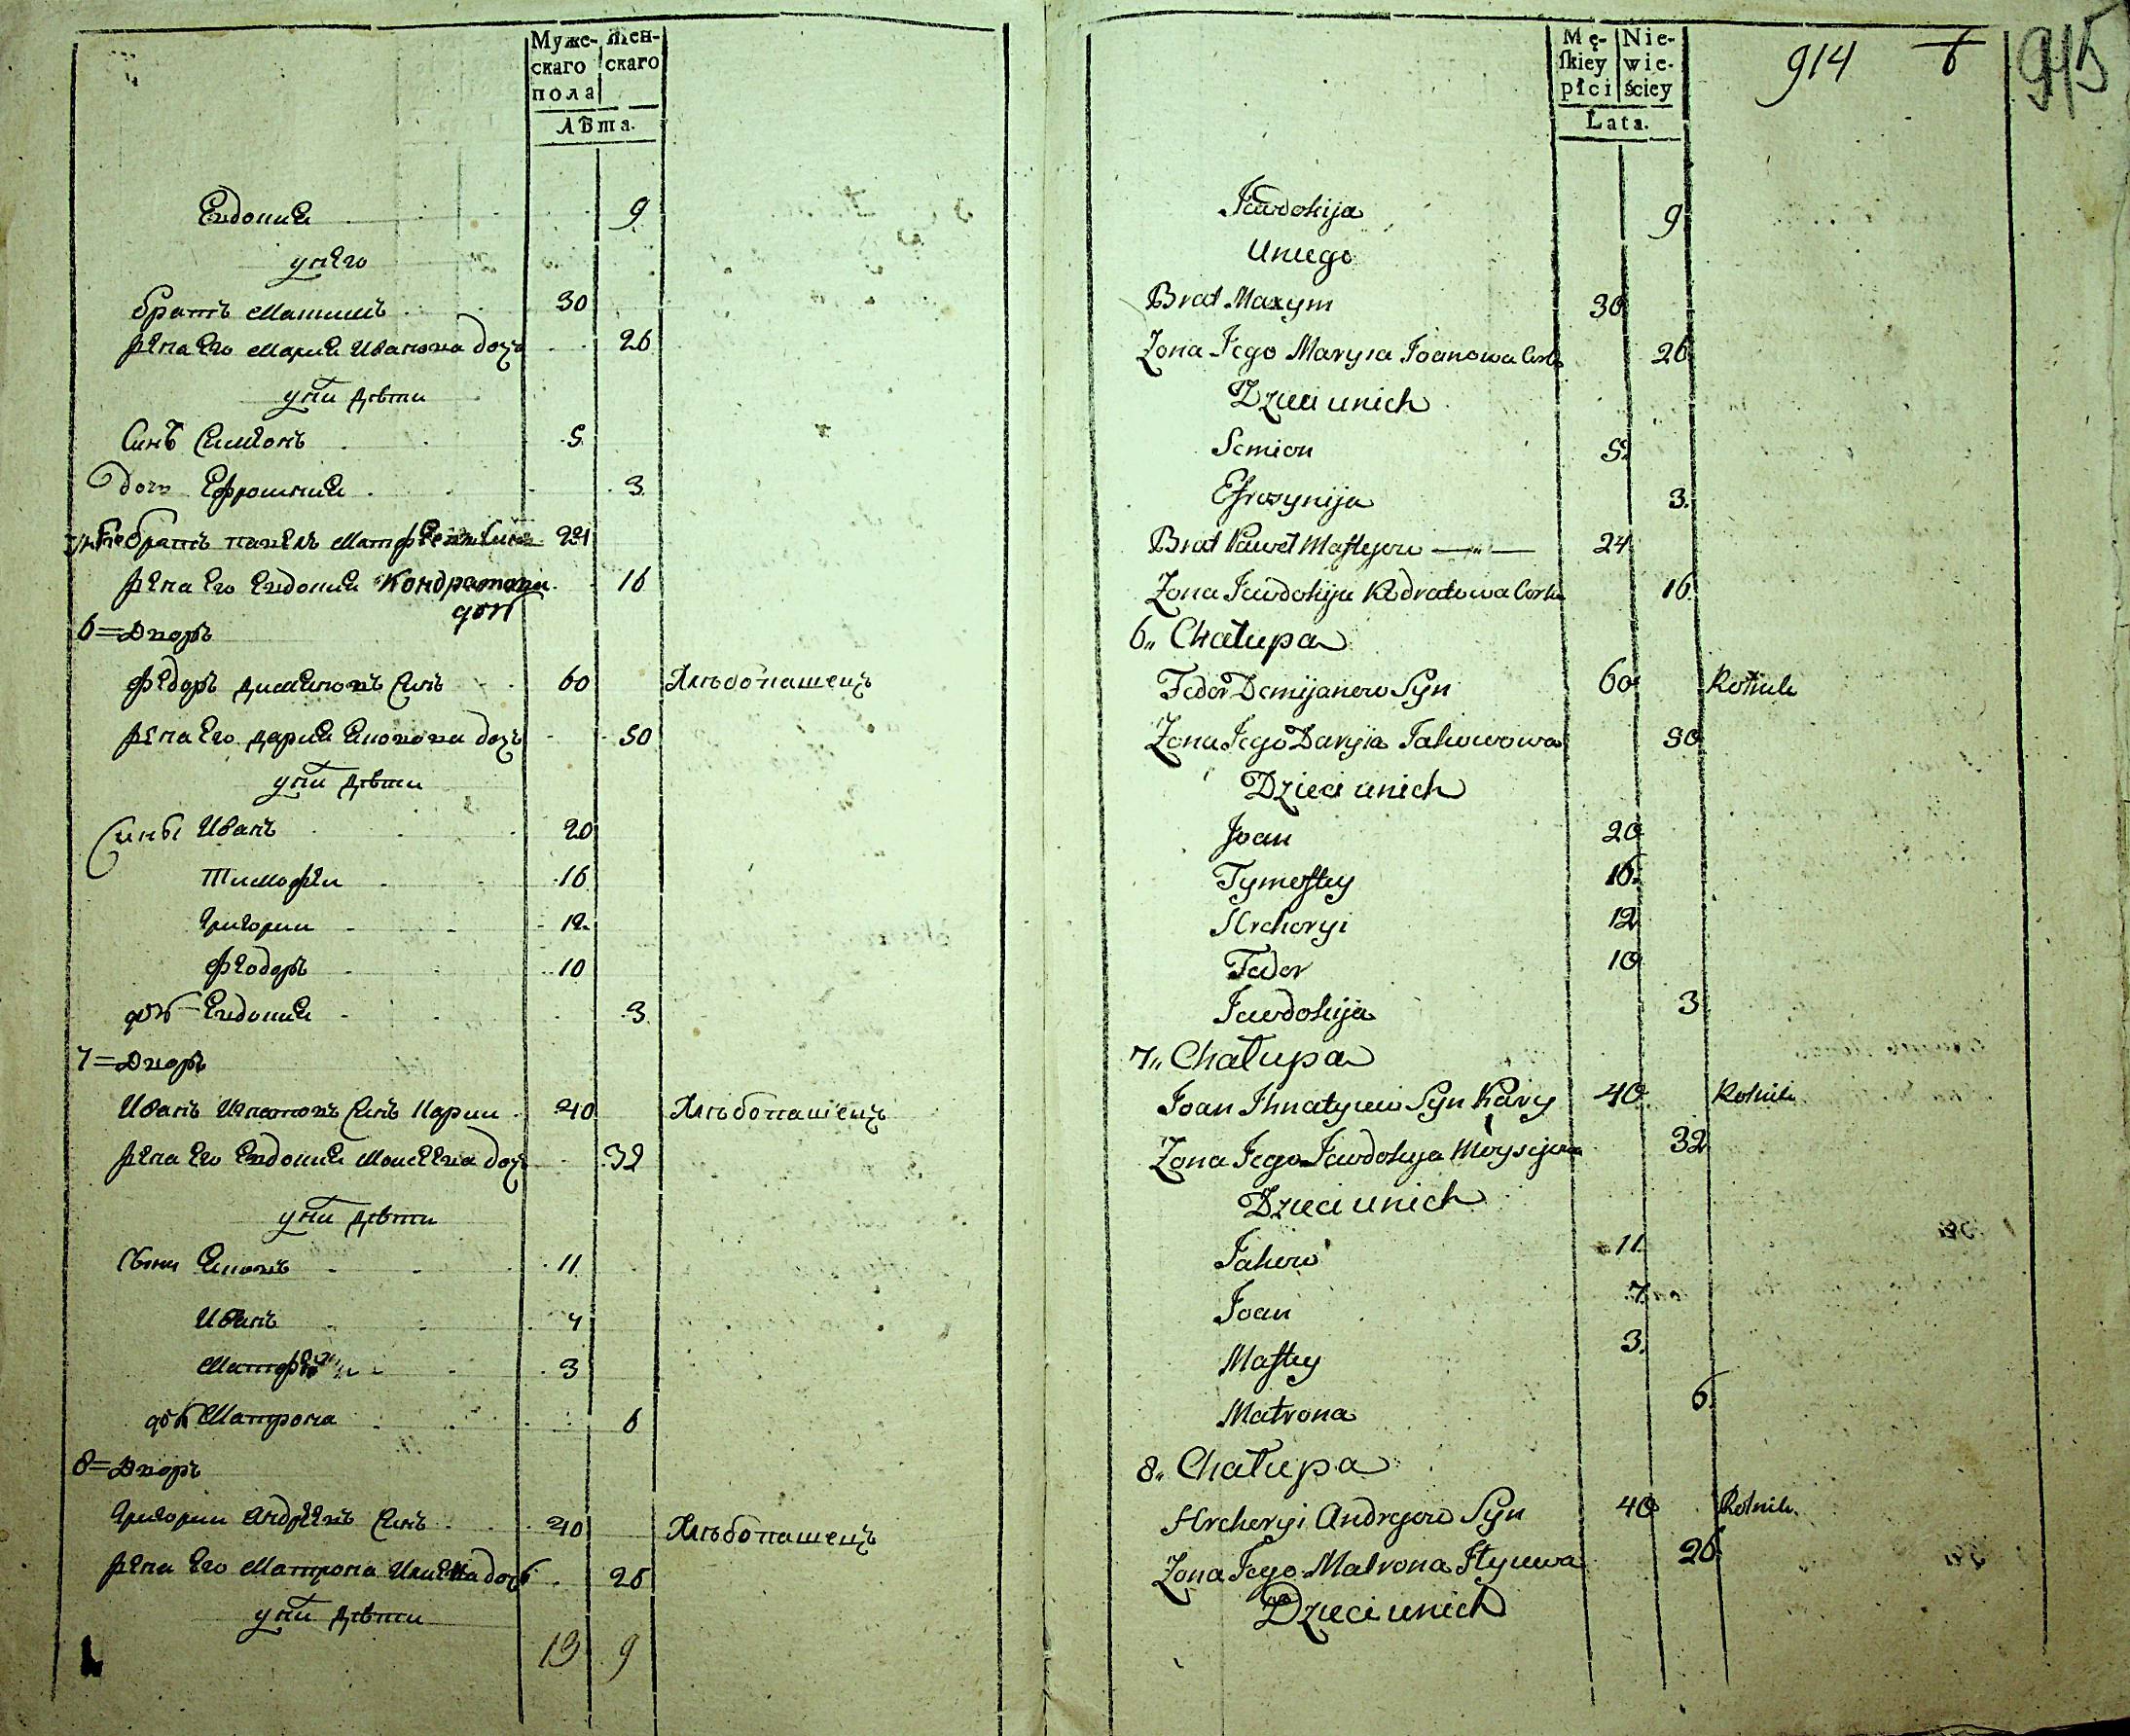 Муже-
скаго
пола
Жен-
скаго
Лѣта.
Евдокия 9
у него
братъ Максимъ 30
жена его Мария Иванова дочь 26
у них дѣти
Синъ Симеонъ 5
дочь Ефросиния 3
у него братъ Павелъ Матфеевъ Синъ 24
жена его Евдокия Кондратова дочь 16
6=Дворъ
Федоръ Димяновъ Синъ 60 Хлѣбопашецъ
жена его Дария Яковова дочь 50
у них дѣти
Сины Иванъ 20
Тимофеи 16
Григории 12
Феодоръ 10
дочь Евдокия 3
7=Дворъ
Иванъ Игнатовъ Синъ Карии 40 Хлѣбопашецъ
жена его Евдокия Моисеева дочь 32
у них дѣти
Сыни Яковъ 11
Иванъ 7
Матфѣи 3
дочь Матрона 6
8=Дворъ
Григории Андреевъ Синъ 40 Хлѣбопашецъ
жена его Матрона Илиева дочь 26
у них дѣти
13 9
Mę-
skiey
płci
Nie-
wie-
ściey
Lata.
914 6
915
Jawdokija 9
Uniego
Brat Maxym 30
Zona Jego Marysia Joanowa Corka 26
Dzieci unich
Semion 5
Efrozynija 3
Brat Paweł Maftejow —„— 24
Zona Jawdokija Kodratowa Corka 16
6„ Chałupa
Fedor Demijanow Syn 60 Rolnik
Zona Jego Daryia Jakowowa 50
Dzieci unich
Joan 20
Tymoftey 16
Hrehoryi 12
Fedor 10
Jawdokija 3
7„ Chałupa
Joan Ihnatyiew Syn Kary 40 Rolnik
Zona Jego Jawdokija Moysejewa 32
Dzieci unich
Jakow 11
Joan 7
Maftey 3
Matrona 6
8„ Chałupa
Hrehoryi Andrejew Syn 40 Rolnik
Zona Jego Matrona Ilyiewa 26
Dzieci unich